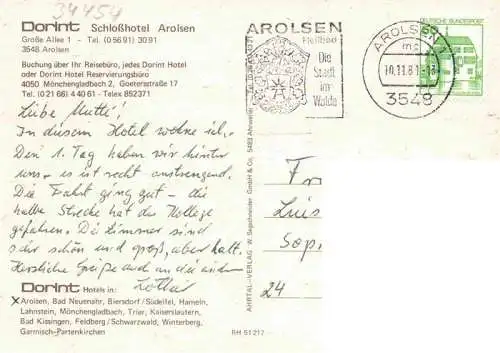 34454
Dorint Schloßhotel Arolsen
Große Allee 1 - Tel. (0 56 91) 30 91
3548 Arolsen
Buchung über Ihr Reisebüro, jedes Dorint Hotel
oder Dorint Hotel Reservierungsbüro
4050 Mönchengladbach 2, Goetersstraße 17
Tel. (0 21 66) 4 40 61 - Telex 852371
Liebe Mutti!
In diesem Hotel wohne ich.
Den 1. Tag haben wir hinter
uns - es ist recht anstrengend.
Die Fahrt ging gut - die
halbe Strecke hat der Kollege
gefahren. Die Zimmer sind
sehr schön und groß, aber kalt.
Herzliche Grüße auch an die andern
Lothar
Dorint Hotels in:
x Arolsen, Bad Neuenahr, Biersdorf/Südeifel, Hameln,
Lahnstein, Mönchengladbach, Trier, Kaiserslautern,
Bad Kissingen, Feldberg/Schwarzwald, Winterberg,
Garmisch-Partenkirchen
RH 51217
AHRTAL-VERLAG W. Segschneider GmbH & Co. 5483 Ahrweiler
AROLSEN
Heilbad
Die
Stadt
im
Walde
AROLSEN
3548
DEUTSCHE BUNDESPOST
Fr
Luis
Sop
24